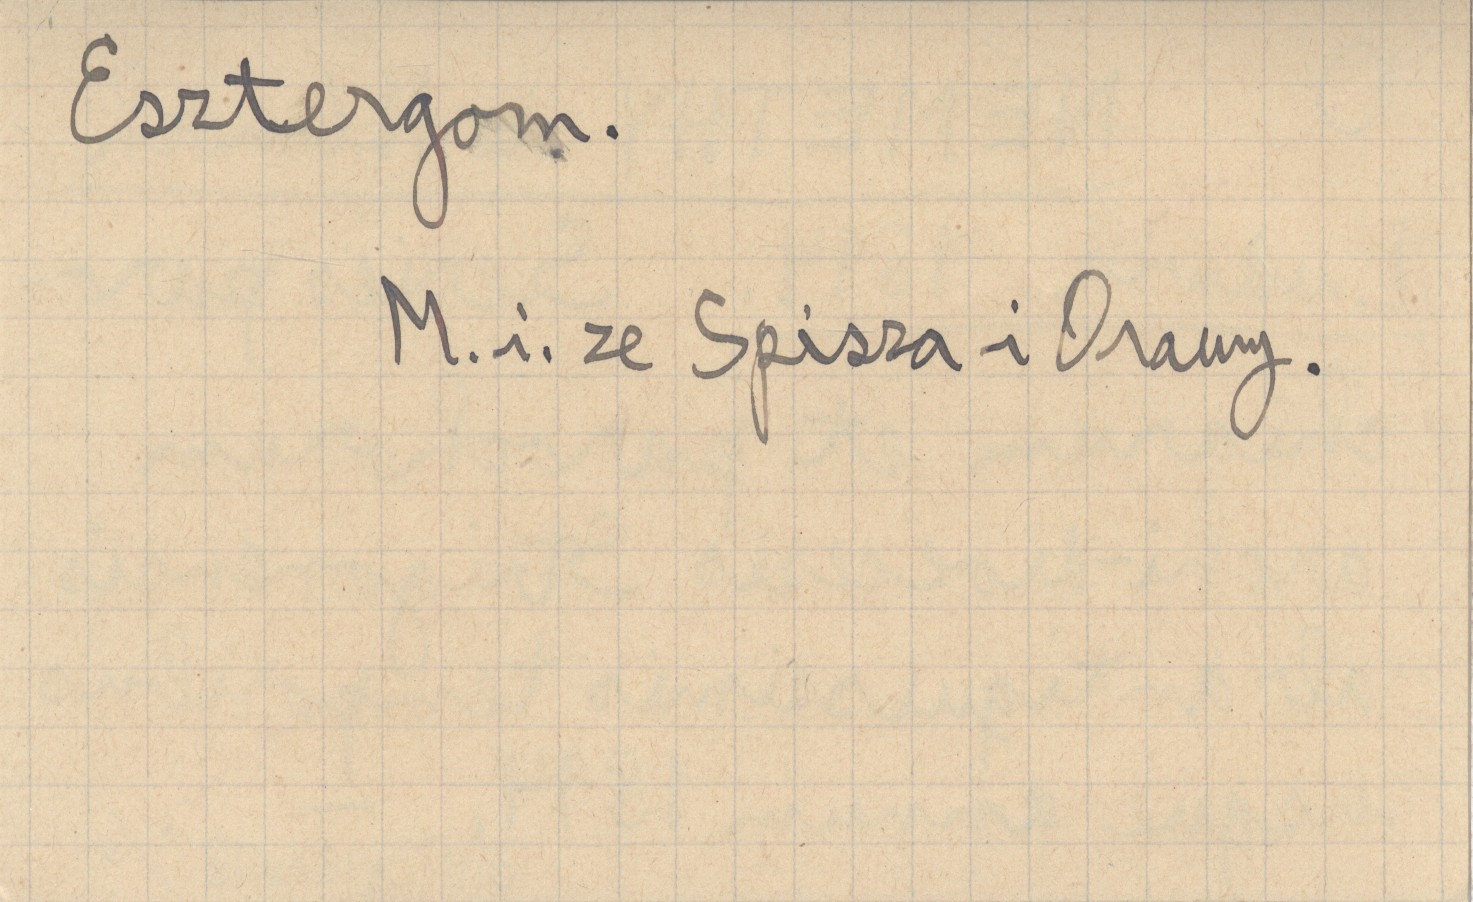 Esztergom.
M. i. ze Spisza i Orawy.